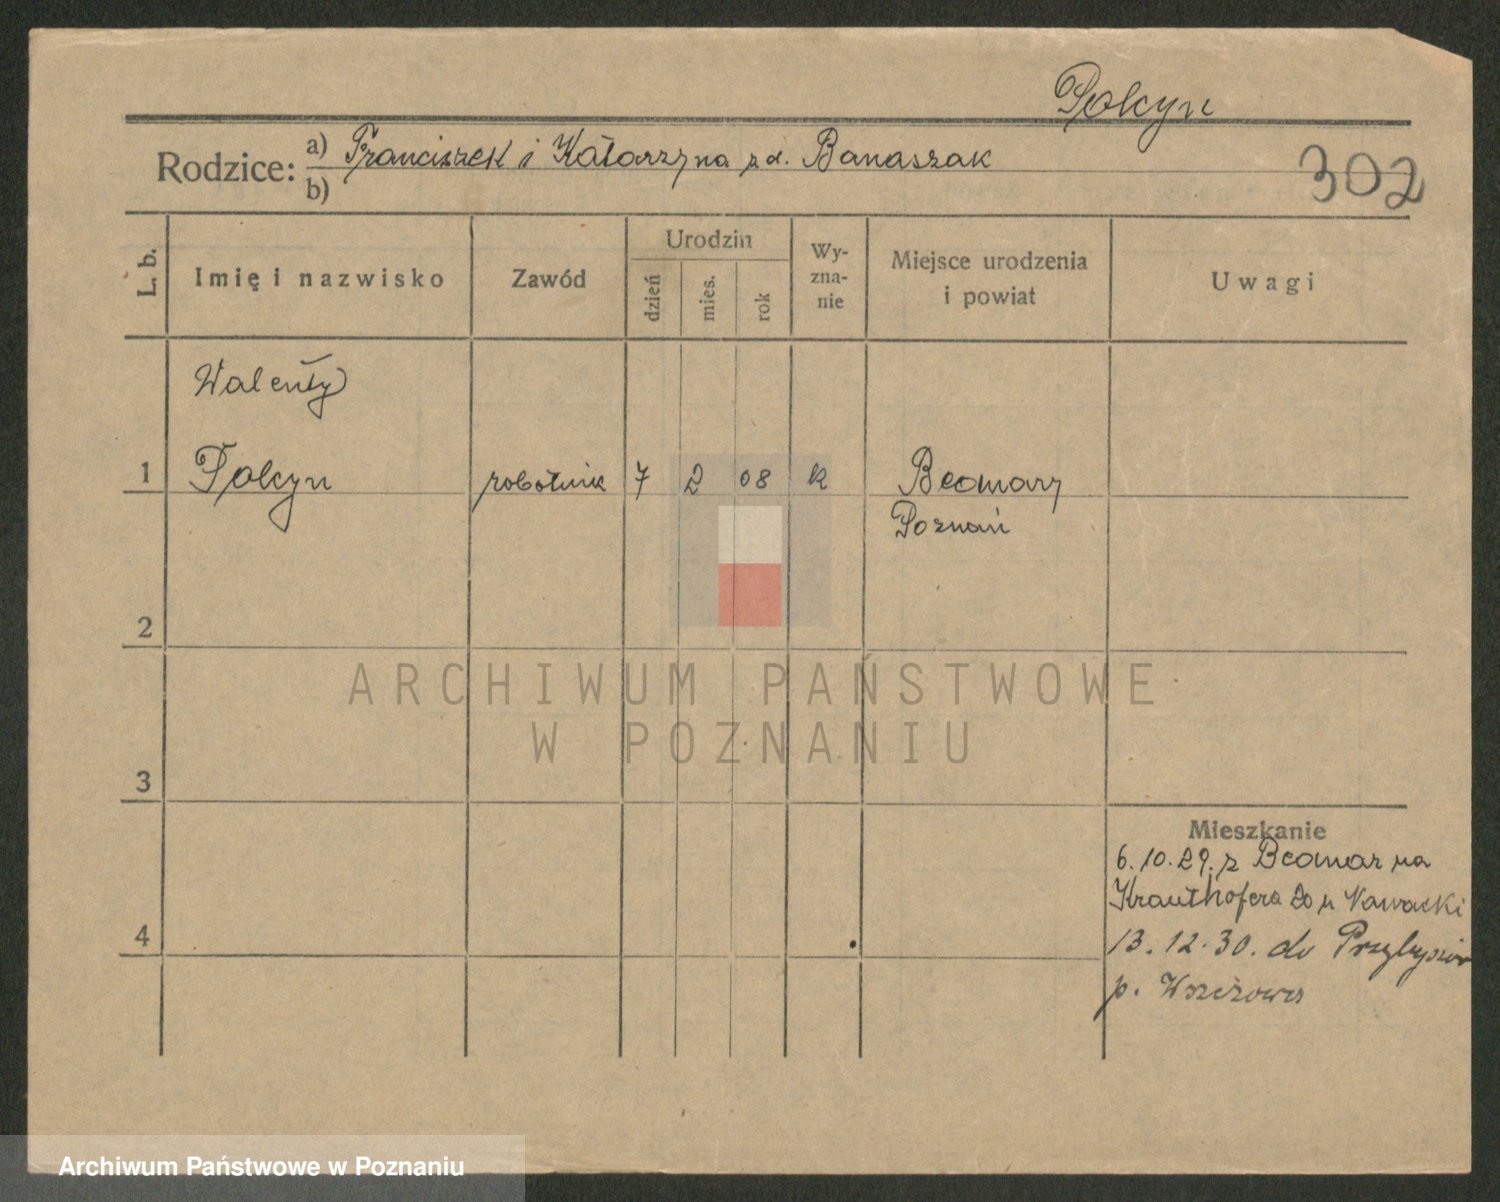 Polcyn
Rodzice: a) Franciszek i Katarzyna z d. Banaszak
b)
302
L. b.
Imię i nazwisko
Zawód
Urodzin
dzień
mies.
rok
Wy-
zna-
nie
Miejsce urodzenia
i powiat
Uwagi
Walenty
1 Polcyn robotnik 7 2 08 k
Poznań
2
3
4
Mieszkanie
6.10.29. z na
Krauthofera 20 u Nawacki
13.12.30. do
p.
ARCHIWUM PAŃSTWOWE
W POZNANIU
Archiwum Państwowe w Poznaniu